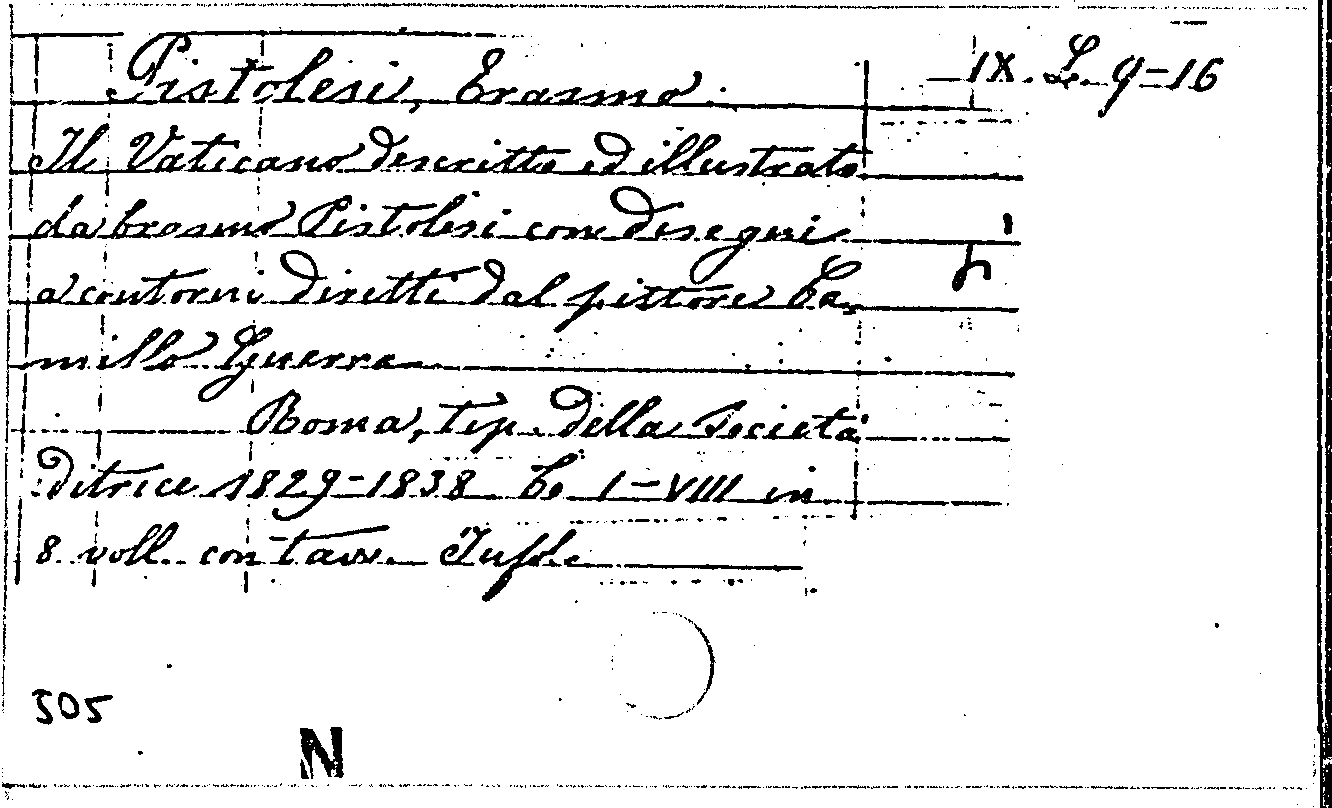 Pistolesi, Erasmo. IX. L. 9-16
Il Vaticano descritto ed illustrato
da Erasmo Pistolesi con disegni
a contorni diretti dal pittore Ca-
millo Guerra
Roma, tip. della Società
Editrice 1829-1838 I-VIII in
8 voll. con tavv.
505
N